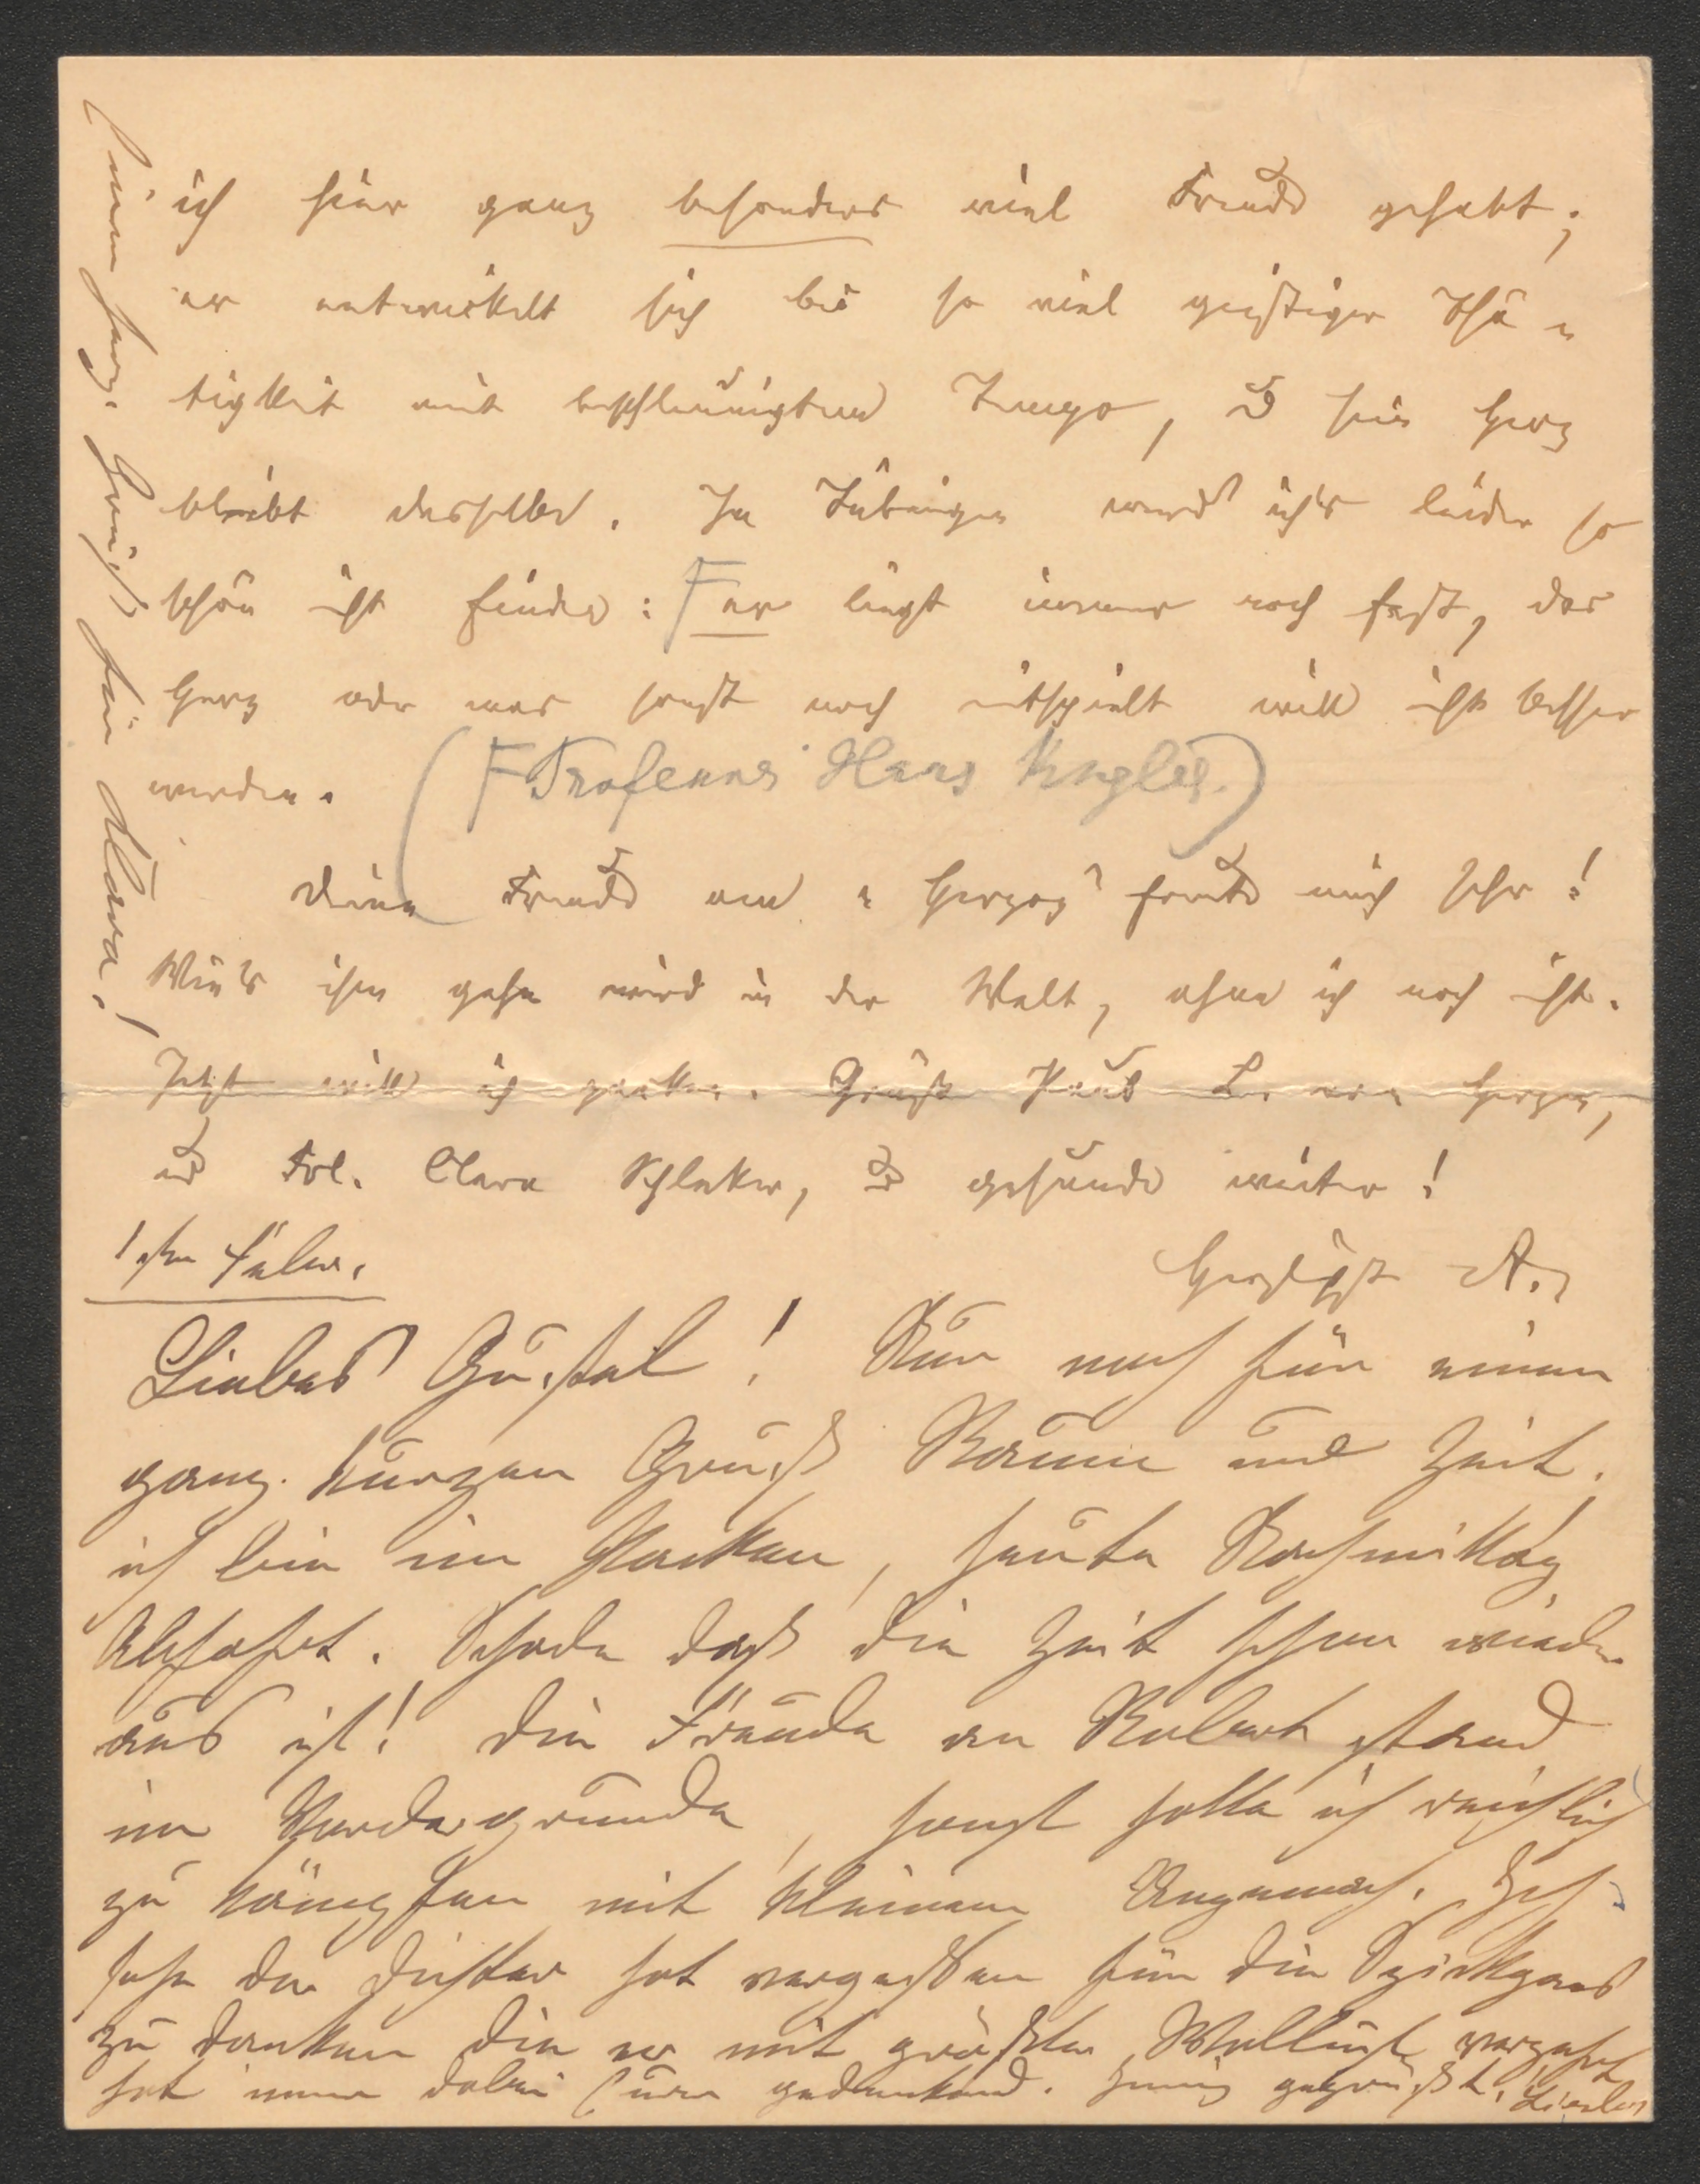 ich hier ganz besonders viel Freude gehabt;
er entwickelt sich bei so viel geistiger Thä-
tigkeit mit beschleunigtem Tempo, & sein Herz
bleibt dasselbe. In Tübingen werd' ich's leider so
schön nicht finden: F er liegt immer noch fest, das
Herz oder was sonst noch mitspielt will nicht besser
werden. (F Professor Hans Kugler.)
Deine Freude am "Herzog" freute mich sehr!
Wie's ihm gehn wird in der Welt, ahne ich noch nicht.
Jetzt will ich packen. Grüße Paul L. von Herzen,
und Frl. Clara Schlatter, & gesunde weiter!
Herzlichst A.
Liebes Gustel! Nur noch für einen
ganz kurzen Gruß Raum und Zeit.
ich bin im Packen, heute Nachmittag
Abfahrt. Schade daß die Zeit schon wieder
aus ist! Die Freude an Robert stand
im Vordergrunde, sonst hatte ich reichlich
zu kämpfen mit kleinem Ungemach. Ich
sehe der Dichter hat vergessen für die Spickgans
zu danken die er mit größter Wollust verzehrt
hat immer dabei Eurer gedenkend. Innig gegrüßt,
mein Herz. Grüße die Clara!